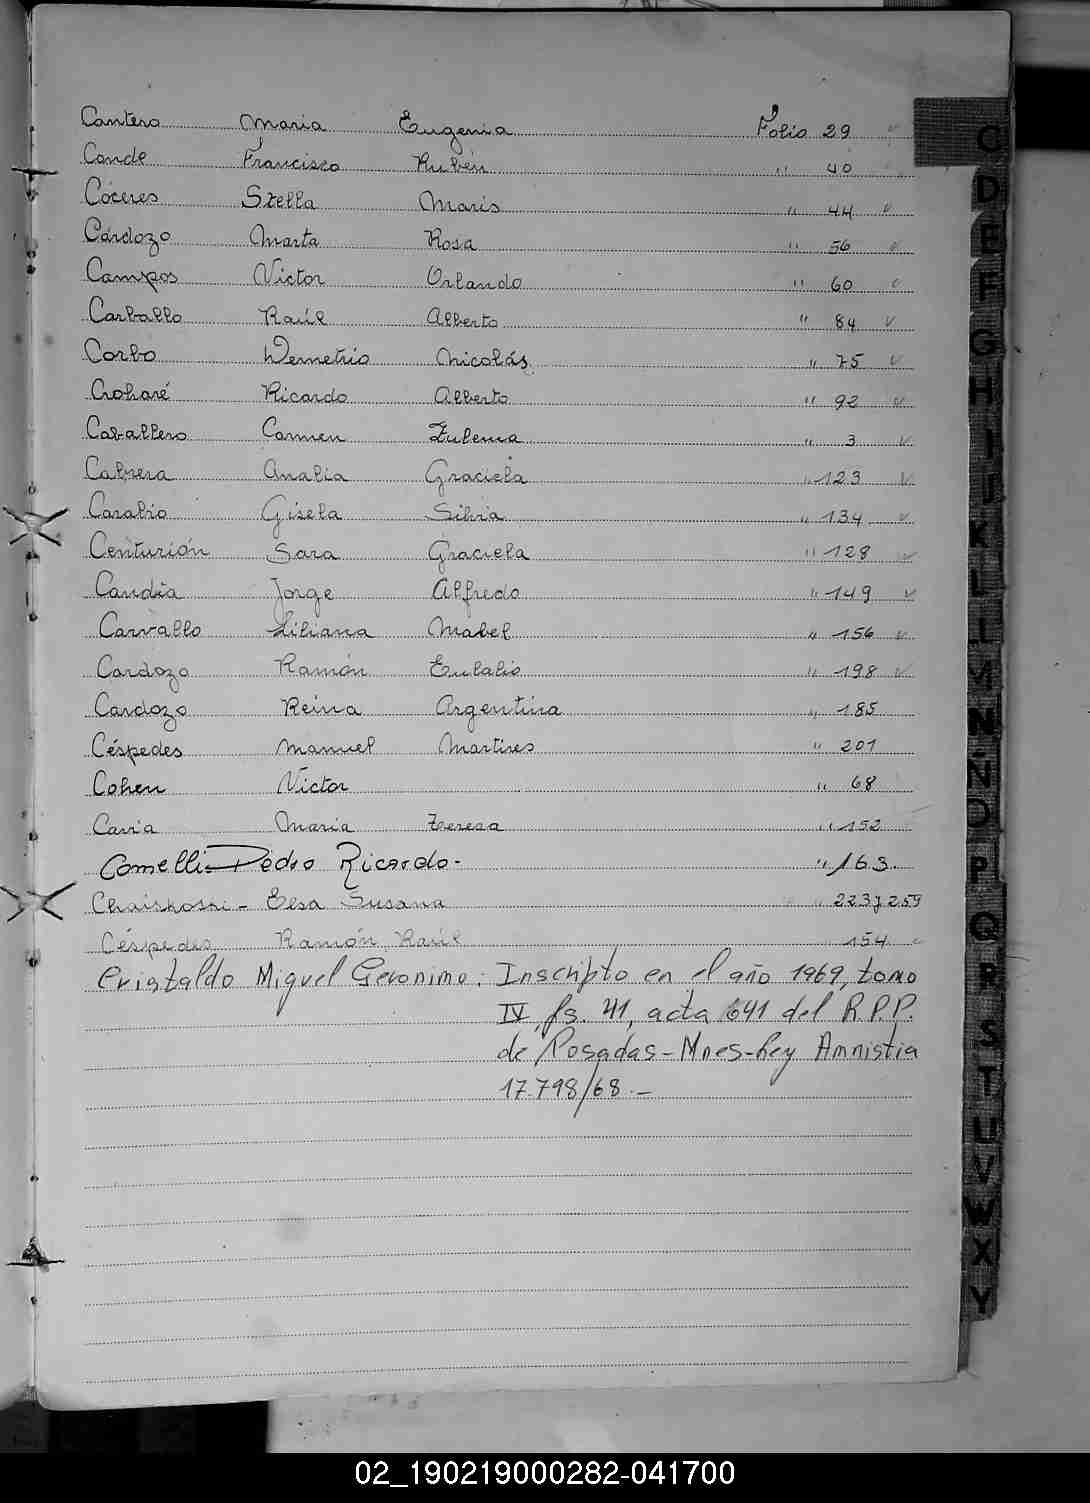 Cantero Maria Eugenia Folio 29
Conde Francisco Rubén " 40
Cóceres Stella Maris " 44
Cárdozo Marta Rosa " 56
Campos Victor Orlando " 60
Carballo Raúl Alberto " 84
Corbo Demetrio Nicolás " 75
Croharé Ricardo Alberto " 92
Caballero Carmen Zulema " 3
Cabrera Analia Graciela " 123
Carabio Gisela Silvia " 134
Centurión Sara Graciela " 128
Candia Jorge Alfredo " 149
Carvallo Liliana Mabel " 156
Cardozo Ramón Eulalio " 198
Cardozo Reina Argentina " 185
Céspedes Manuel Martires " 201
Cohen Victor " 68
Maria Teresa " 152
Comelli Pedro Ricardo- " 163
Elsa Susana " 223y259
Céspedes Ramón Raúl " 154
Cristaldo Miguel Geronimo: Inscripto en el año 1969, tomo
IV fs. 41, acta 641 del R.P.P.
de Posadas-Mnes-Ley Amnistia
17.798/68.-
C
D
E
F
G
H
I
J
K
L
L
M
N
Ñ
O
P
Q
R
S
T
U
V
W
X
Y
02_190219000282-041700